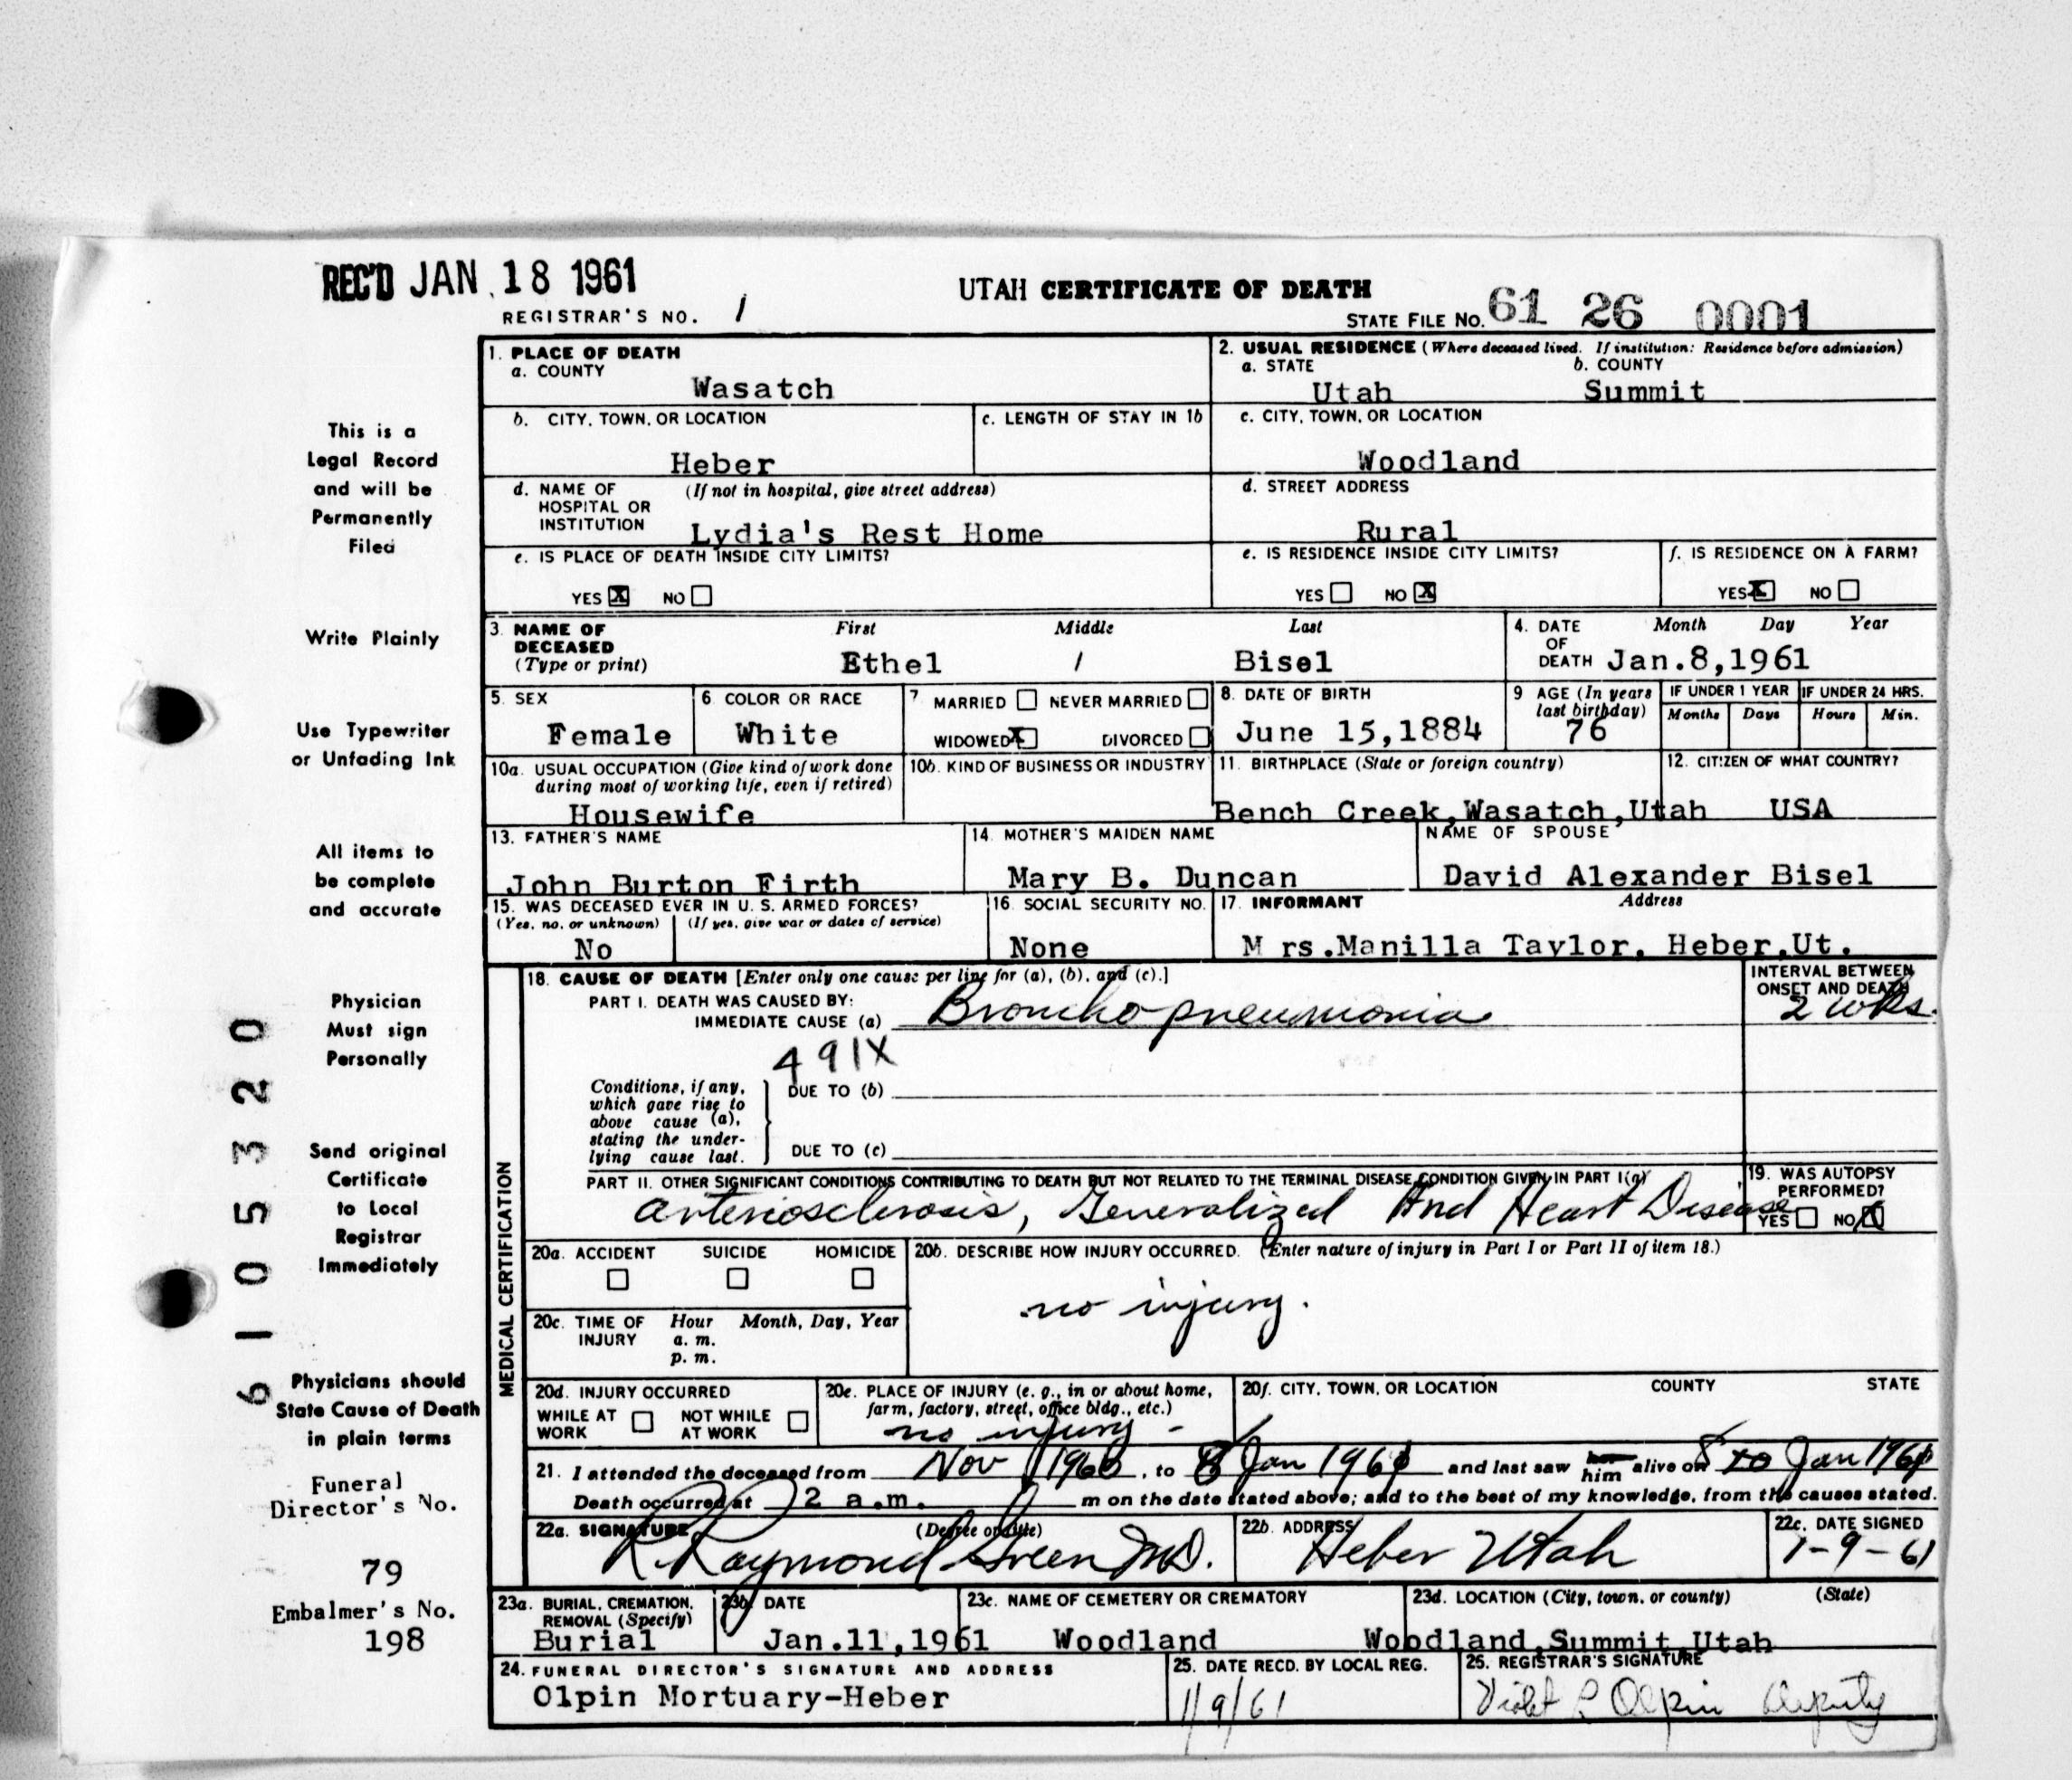 REC'D JAN 18 1961
UTAH CERTIFICATE OF DEATH
REGISTRAR'S NO. 1
STATE FILE NO. 61 26 0001
This is a
Legal Record
and will be
Permanently
Filed
Write Plainly
Use Typewriter
or Unfading Ink
All items to
be complete
and accurate
Physician
Must sign
Personally
Send original
Certificate
to Local
Registrar
Immediately
Physicians should
State Cause of Death
in plain terms
Funeral
Director's No.
79
Embalmer's No.
198
6105320
1. PLACE OF DEATH
a. COUNTY
Wasatch
2. USUAL RESIDENCE (Where deceased lived. If institution: Residence before admission)
a. STATE b. COUNTY
Utah Summit
b. CITY, TOWN, OR LOCATION
Heber
c. LENGTH OF STAY IN 1b
c. CITY, TOWN, OR LOCATION
Woodland
d. NAME OF (If not in hospital, give street address)
HOSPITAL OR
INSTITUTION Lydia's Rest Home
d. STREET ADDRESS
Rural
e. IS PLACE OF DEATH INSIDE CITY LIMITS?
YES X NO
e. IS RESIDENCE INSIDE CITY LIMITS?
YES NO X
f. IS RESIDENCE ON A FARM?
YES X NO
3. NAME OF First Middle Last
DECEASED
(Type or print) Ethel / Bisel
4. DATE Month Day Year
OF
DEATH Jan.8,1961
5. SEX
Female
6 COLOR OR RACE
White
7 MARRIED NEVER MARRIED
WIDOWED X DIVORCED
8. DATE OF BIRTH
June 15,1884
9 AGE (In years
last birthday)
76
IF UNDER 1 YEAR IF UNDER 24 HRS.
Months Days Hours Min.
10a. USUAL OCCUPATION (Give kind of work done
during most of working life, even if retired)
Housewife
10b. KIND OF BUSINESS OR INDUSTRY
11. BIRTHPLACE (State or foreign country)
Bench Creek,Wasatch,Utah
12. CITIZEN OF WHAT COUNTRY?
USA
13. FATHER'S NAME
John Burton Firth
14. MOTHER'S MAIDEN NAME
Mary B. Duncan
NAME OF SPOUSE
David Alexander Bisel
15. WAS DECEASED EVER IN U. S. ARMED FORCES?
(Yes, no, or unknown) (If yes, give war or dates of service)
No
16. SOCIAL SECURITY NO.
None
17. INFORMANT Address
M rs.Manilla Taylor, Heber,Ut.
MEDICAL CERTIFICATION
18. CAUSE OF DEATH [Enter only one cause per line for (a), (b), and (c).]
PART I. DEATH WAS CAUSED BY:
IMMEDIATE CAUSE (a) Bronchopneumonia
INTERVAL BETWEEN
ONSET AND DEATH
2 wks.
491X
Conditions, if any,
which gave rise to
above cause (a),
stating the under-
lying cause last.
DUE TO (b)
DUE TO (c)
PART II. OTHER SIGNIFICANT CONDITIONS CONTRIBUTING TO DEATH BUT NOT RELATED TO THE TERMINAL DISEASE CONDITION GIVEN IN PART I(a)
Arteriosclerosis, Generalized And Heart Disease
19. WAS AUTOPSY
PERFORMED?
YES NO X
20a. ACCIDENT SUICIDE HOMICIDE
20b. DESCRIBE HOW INJURY OCCURRED. (Enter nature of injury in Part I or Part II of item 18.)
no injury.
20c. TIME OF Hour Month, Day, Year
INJURY a. m.
p. m.
20d. INJURY OCCURRED
WHILE AT NOT WHILE
WORK AT WORK
20e. PLACE OF INJURY (e. g., in or about home,
farm, factory, street, office bldg., etc.)
no injury -
20f. CITY, TOWN, OR LOCATION COUNTY STATE
21. I attended the deceased from Nov 1960, to 8 Jan 1961 and last saw her him alive on 8 to Jan 1961
Death occurred at 2 a.m. m on the date stated above; and to the best of my knowledge, from the causes stated.
22a. SIGNATURE (Degree or title)
R Raymond Green M.D.
22b. ADDRESS
Heber Utah
22c. DATE SIGNED
1-9-61
23a. BURIAL, CREMATION,
REMOVAL (Specify)
Burial
23b. DATE
Jan.11,1961
23c. NAME OF CEMETERY OR CREMATORY
Woodland
23d. LOCATION (City, town, or county) (State)
Woodland,Summit,Utah
24. FUNERAL DIRECTOR'S SIGNATURE AND ADDRESS
Olpin Mortuary-Heber
25. DATE RECD. BY LOCAL REG.
1/9/61
25. REGISTRAR'S SIGNATURE
Violet L Olpin deputy